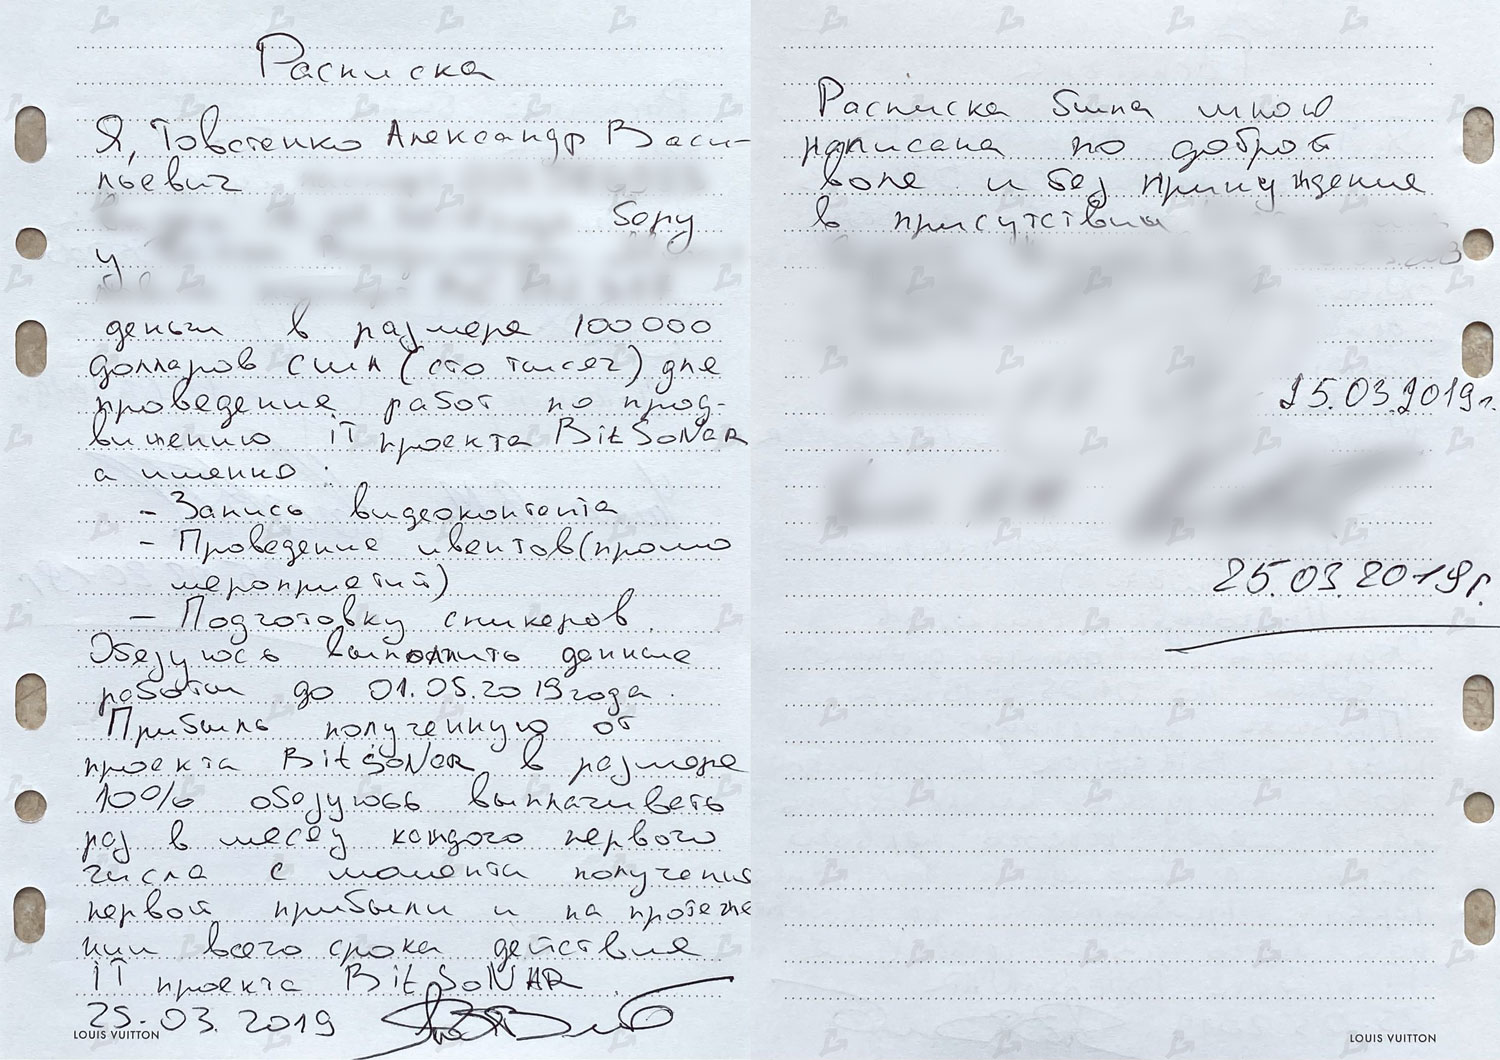 Расписка
Я, Товстенко Александр Васи-
льевич
беру
у
деньги в размере 100000
долларов США (сто тысяч) для
проведения работ по прод-
вижению IT проекта BitSoNar
а именно :
- Запись видеоконтента
- Проведение ивентов (промо
мероприятий)
- Подготовку спикеров.
Обезуюсь выполнить данные
работы до 01.05.2019 года.
Прибыль полученную от
проекта BitSoNar в размере
10% обезуюсь выплачивать
раз в месец каждого первого
числа с момента получения
первой прибыли и на протеже
нии всего срока действия
IT проекта BitSoNAR.
25.03.2019
LOUIS VUITTON
Расписка была мною
написана по доброй
воле и без принуждения
в присутствии
25.03.2019г.
25.03.2019г.
LOUIS VUITTON